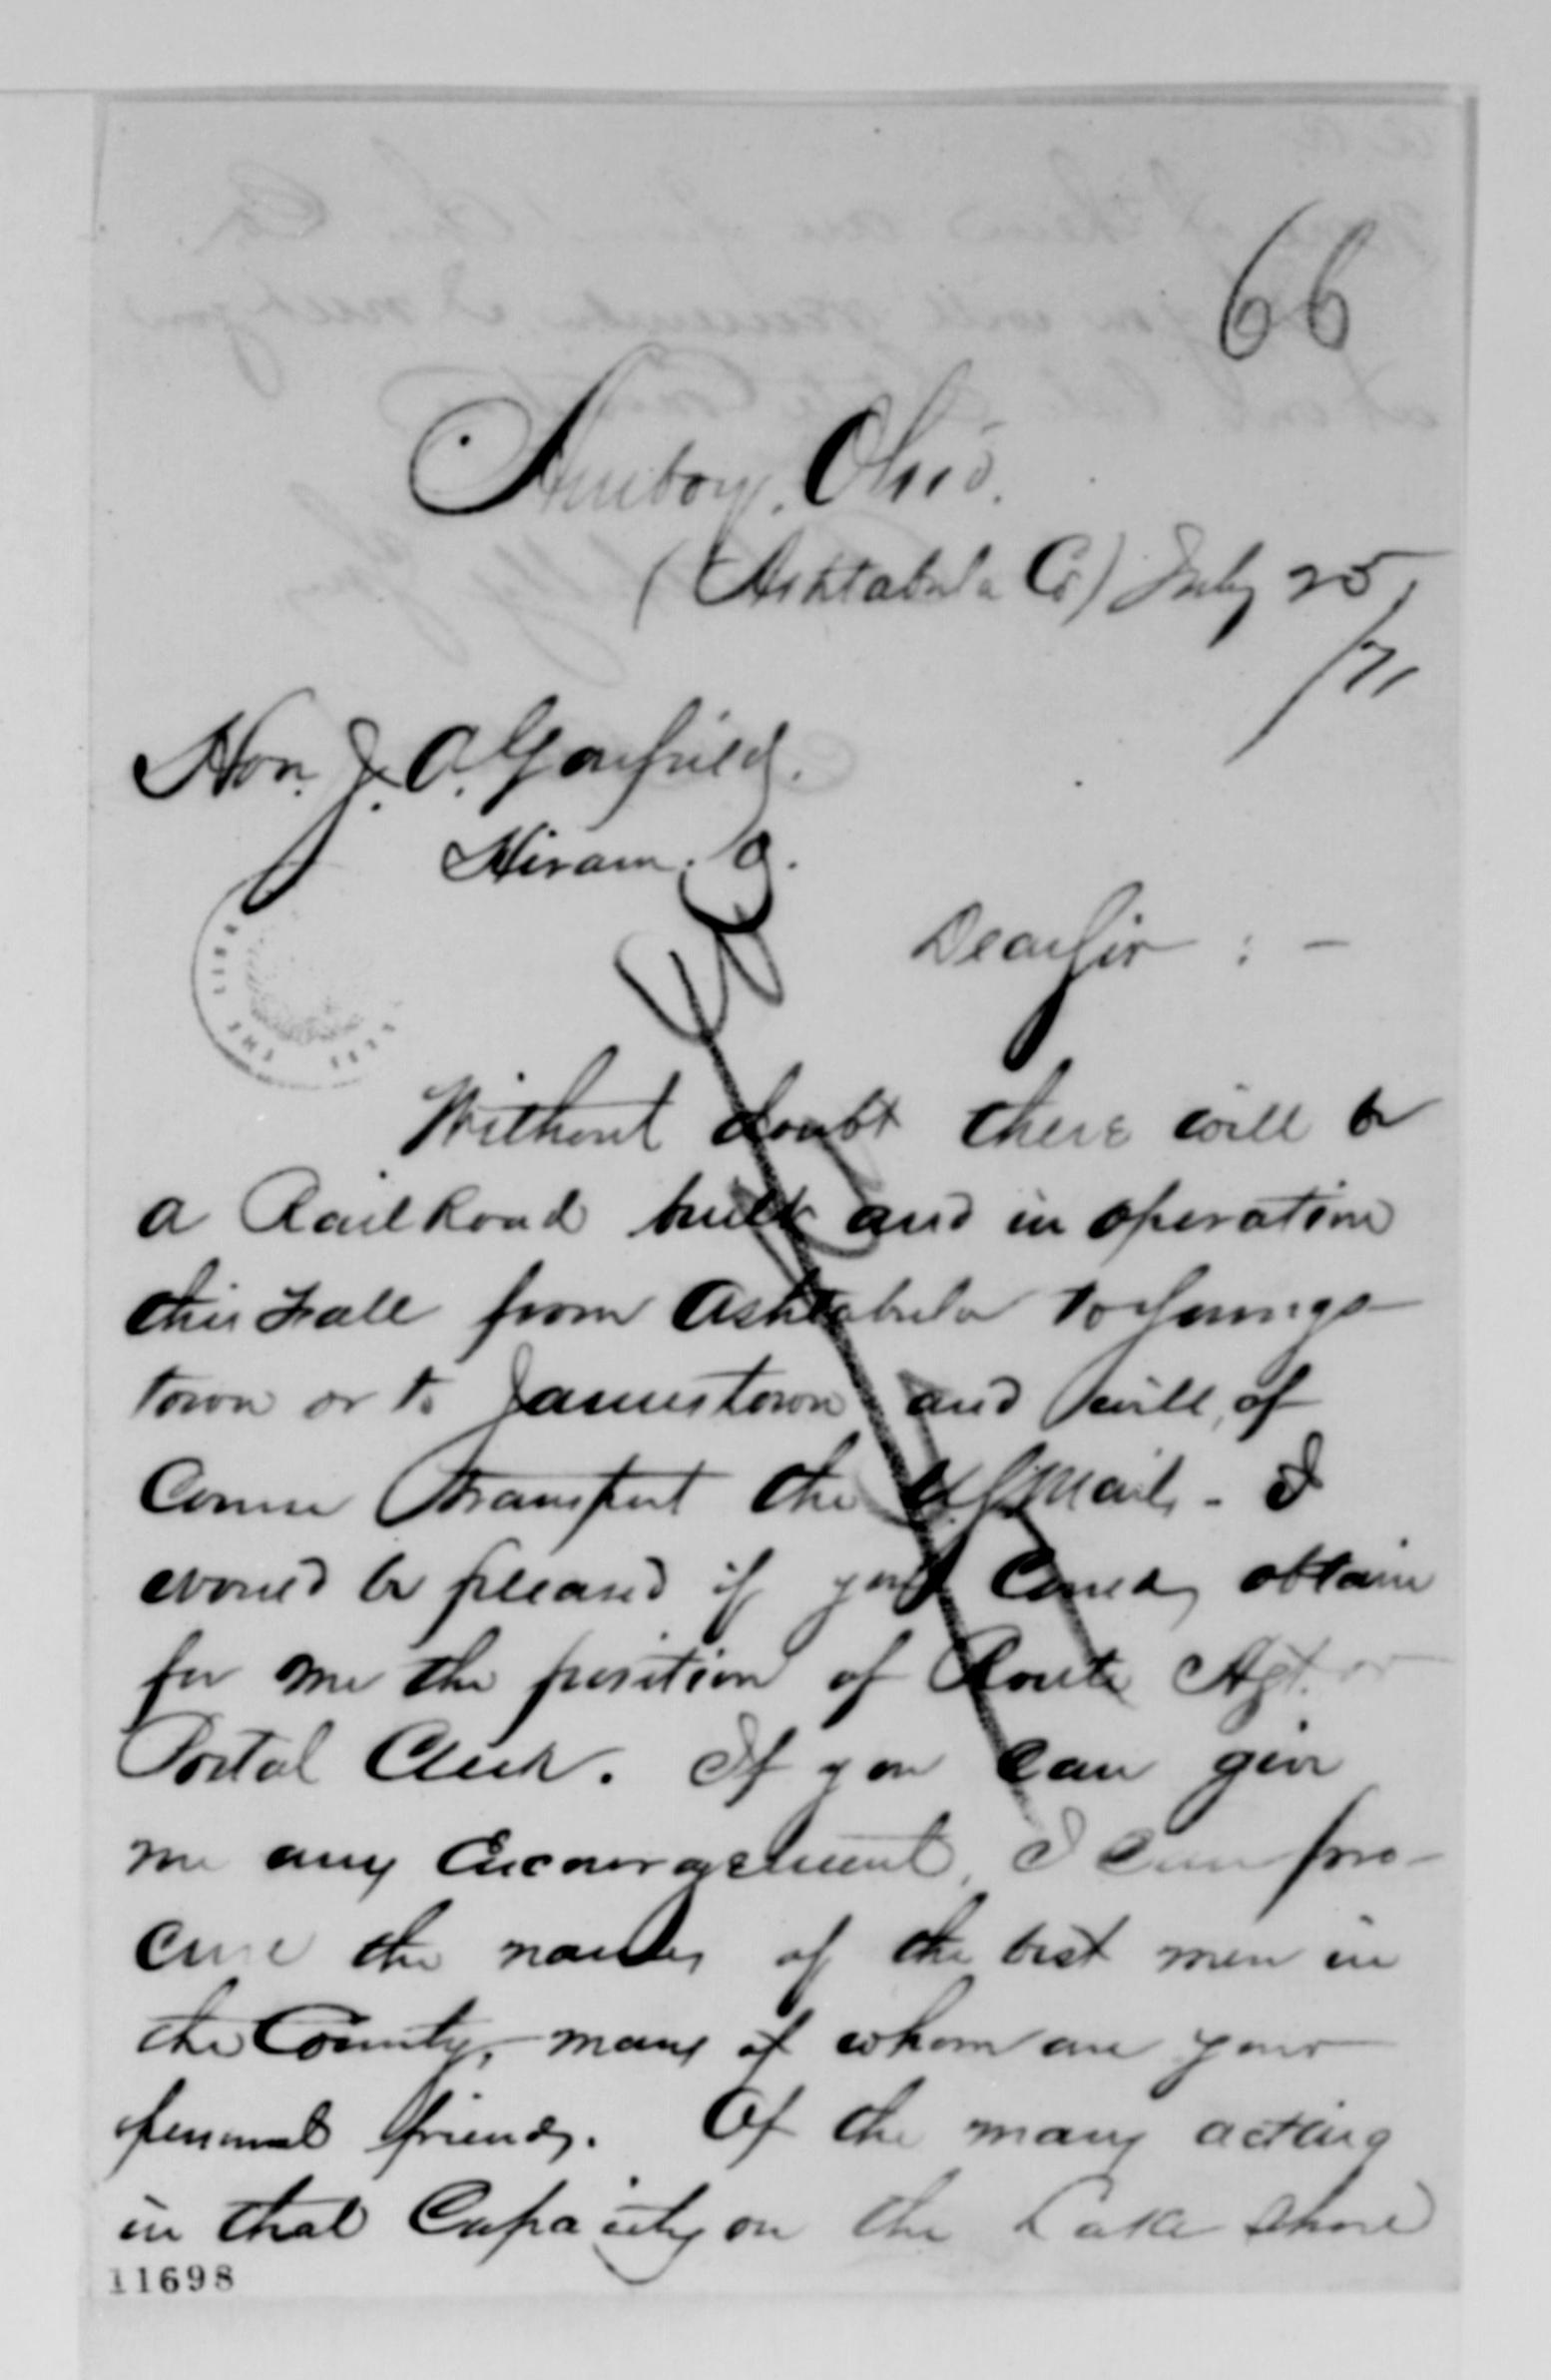 66
Amboy, Ohio.
(Ashtabula Co) July 25,
/71
Hon. J. A. Garfield.
Hiram. O.
Dear Sir : —
Without doubt there will be
a Railroad built and in operation
this Fall from Ashtabula to Youngs-
town or to Jamestown and will, of
Course transport the U.S. Mails - I
would be pleased if you could obtain
for me the position of Route Agt. or
Postal Clerk. If you can give
me any Encouragement, I can pro-
cure the names of the best men in
the County, many of whom are your
personal friends. Of the many acting
in that Capacity on the Lake Shore
11698